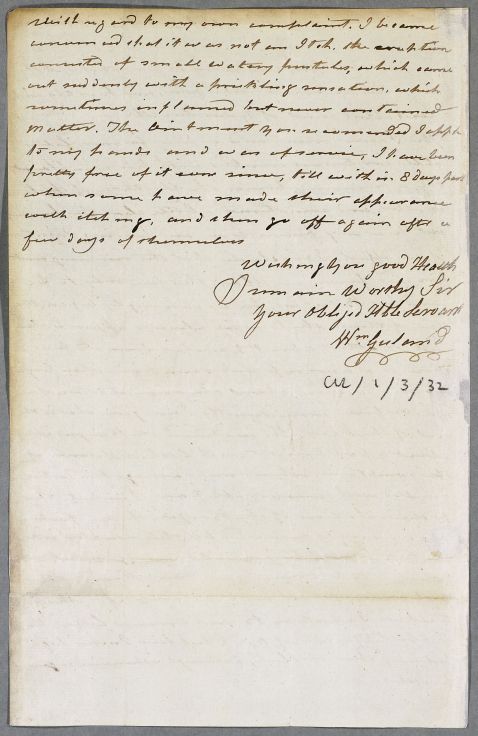 With regard to my own complaint. I became
convinced that it was not an Itch. the eruption
consisted of small watery pustules, which came
out suddenly with a prickling sensation, which
sometimes inflamed but never contained
matter. The Ointment you recomended I apply
to my hands and was of service, I have been
pretty free of it ever since, till within 8 days past
when some have made their appearance
with itching, and then go off again after a
few days of themselves
Wishing you good Health
I remain Worthy Sir
Your Obliged Hble Servant
Wm
CUL/1/3/32